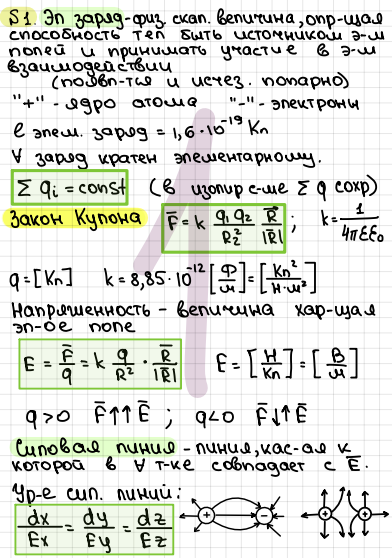 §1. Эл заряд-физ. скал. величина, опр-щая
способность тел быть источником э-м
полей и принимать участие в э-м
взаимодействии
(появл-тся и исчез. попарно)
"+" - ядро атома "-" - электроны
e элем. заряд = 1,6·10⁻¹⁹ Кл
∀ заряд кратен элементарному.
Σ qᵢ = const (в изолир с-ме Σ q сохр)
Закон Кулона F̅ = k q₁q₂/R₂² R̅/|R̅| ; k = 1/4πεε₀
q = [Кл] k = 8,85·10⁻¹² [Ф/м] = [Кл²/Н·м²]
Напряженность - величина хар-щая
эл-ое поле
E = F̅/q = k q/R² · R̅/|R̅| E = [Н/Кл] = [В/м]
q>0 F̅↑↑E̅ ; q<0 F̅↓↑E̅
Силовая линия - линия, кас-ая к
которой в ∀ т-ке совпадает с E̅.
Ур-е сил. линий:
dx/Ex = dy/Ey = dz/Ez
+ - + +
1